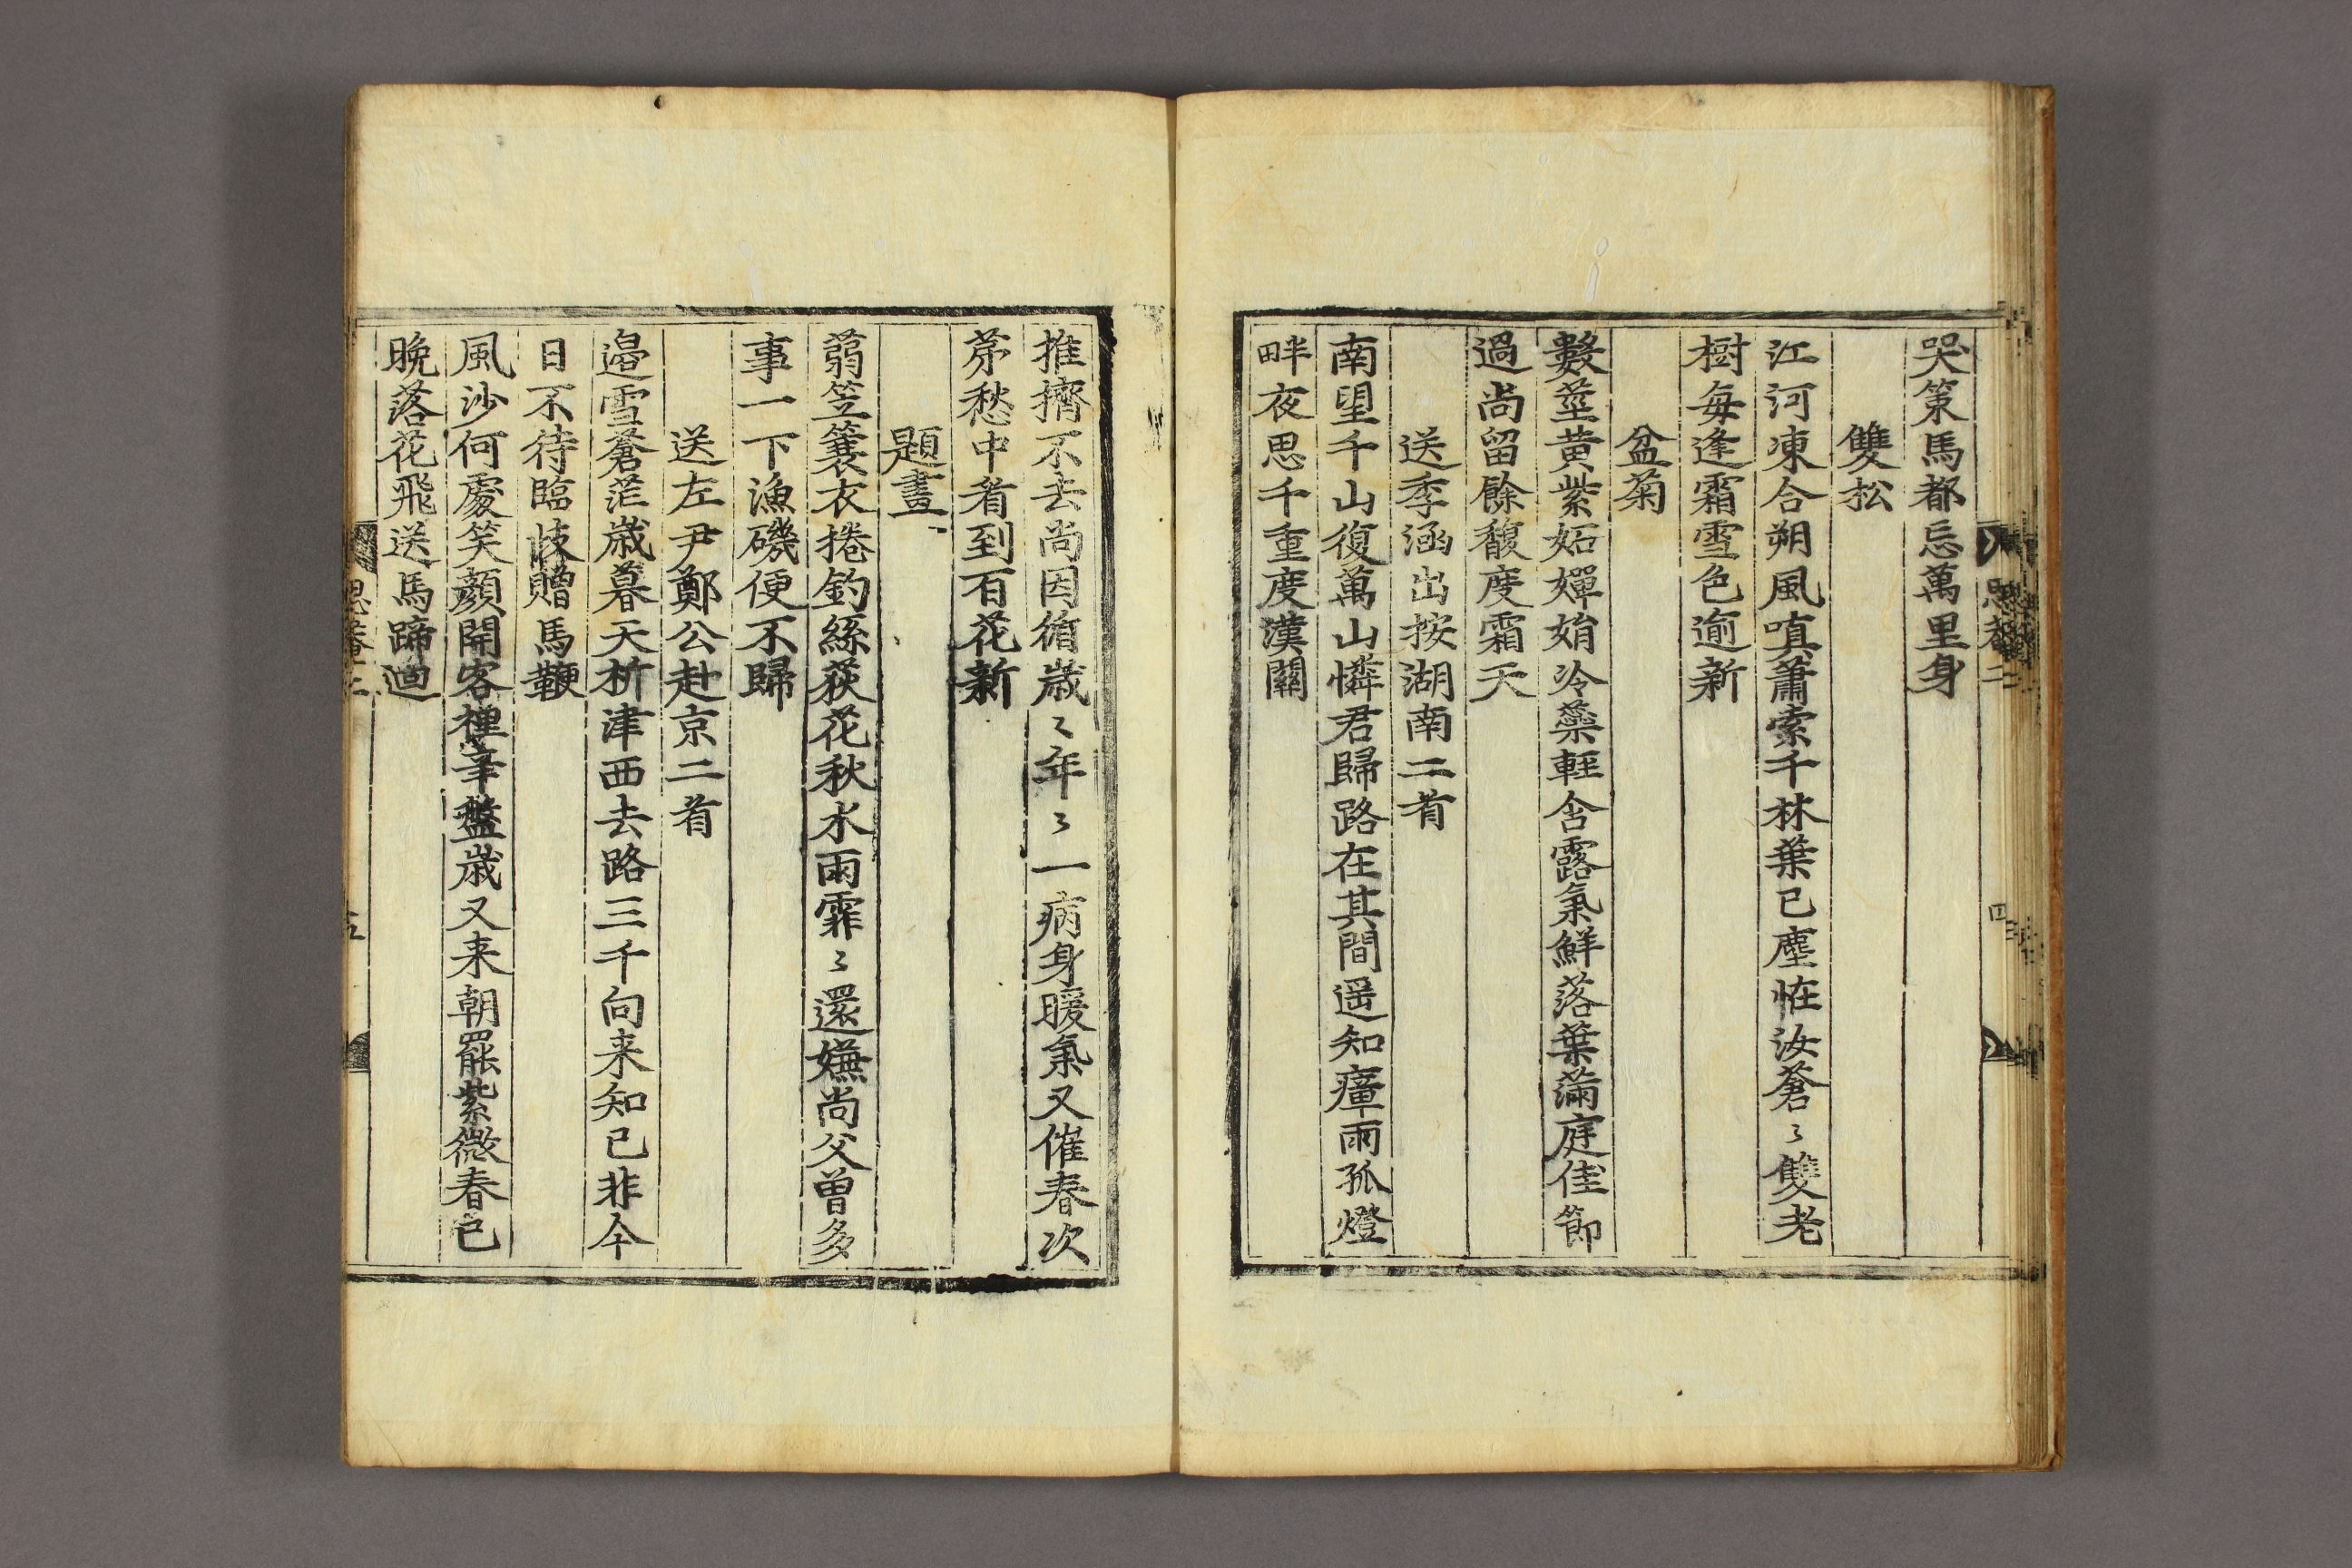 哭策馬都忘萬里身
雙松
江河凍合朔風嗔蕭索千林葉已塵怪汝蒼〻雙老
樹每逢霜雪色逾新
盆菊
數莖黃紫妬嬋娟冷蘂輕含露氣鮮落葉滿庭佳節
過尙留餘馥度霜天
送季涵出按湖南二首
南望千山復萬山憐君歸路在其間遥知瘴雨孤燈
畔夜思千重度漢關
推擠不去尙因循歲〻年〻一病身暖氣又催春次
苐愁中看到百花新
題畫
蒻笠簑衣捲釣絲荻花秋水雨霏〻還嫌尙父曾多
事一下漁磯便不歸
送左尹鄭公赴京二首
邉雪蒼茫歲暮天析津西去路三千向来知已非今
日不待臨歧贈馬鞭
風沙何處笑顔開客裡辛盤歲又来朝罷紫微春色
晚落花飛送馬蹄迴